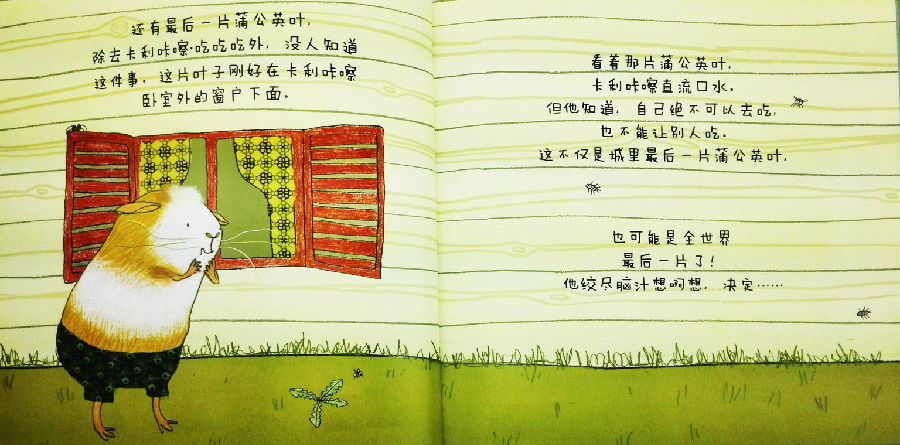 还有最后一片蒲公英叶，
除去卡利咔嚓·吃吃吃外，没人知道
这件事，这片叶子刚好在卡利咔嚓
卧室外的窗户下面。
看着那片蒲公英叶，
卡利咔嚓直流口水。
但他知道，自己绝不可以去吃，
也不能让别人吃。
这不仅是城里最后一片蒲公英叶，
也可能是全世界
最后一片了！
他绞尽脑汁想啊想，决定……